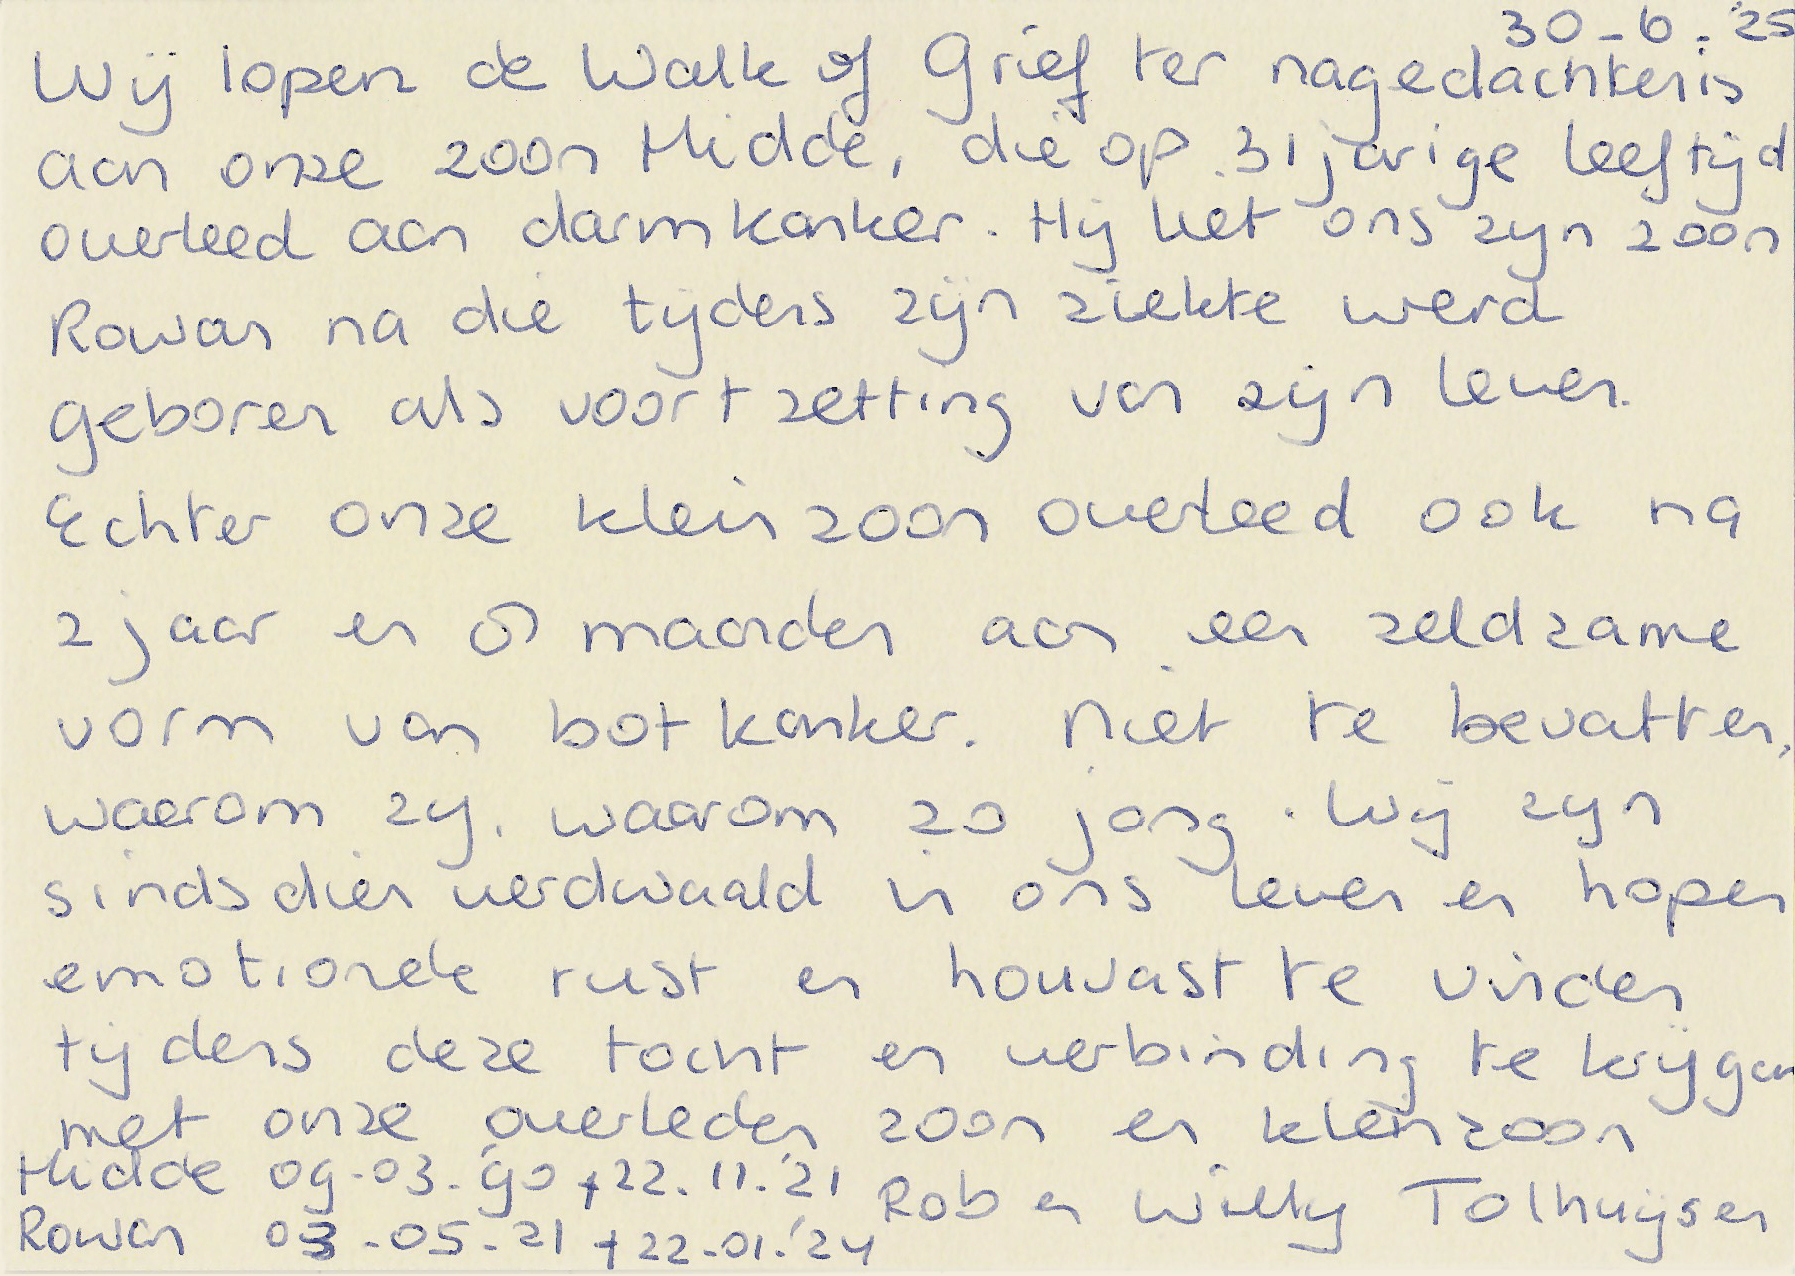 30-6-'25
Wij lopen de Walk of Grief ter nagedachtenis
aan onze zoon Hidde, die op 31 jarige leeftijd
overleed aan darmkanker. Hij liet ons zijn zoon
Rowan na die tijdens zijn ziekte werd
geboren als voortzetting van zijn leven.
Echter onze kleinzoon overleed ook na
2 jaar en 8 maanden aan een zeldzame
vorm van botkanker. Niet te bevatten,
waarom zij. waarom zo jong. Wij zijn
sindsdien verdwaald in ons leven en hopen
emotionele rust en houvast te vinden
tijdens deze tocht en verbinding te krijgen
met onze overleden zoon en kleinzoon
Hidde 09-03-'90 +22.11.'21 Rob en Willy Tolhuijsen
Rowan 03-05-21 +22-01-'24